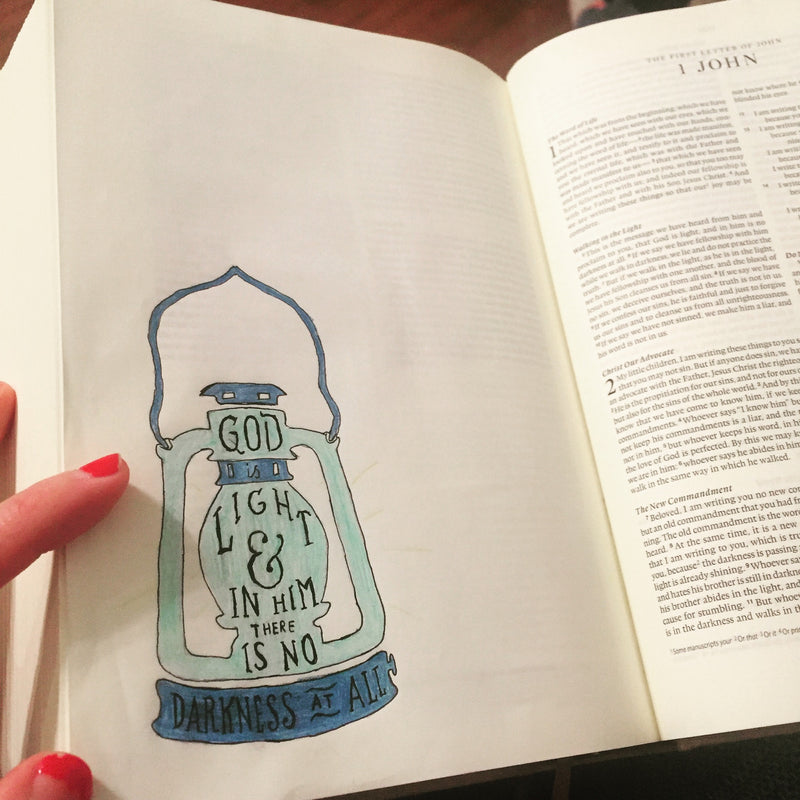 GOD
is
LIGHT
&
IN HIM
THERE
IS NO
DARKNESS AT ALL
THE FIRST LETTER OF JOHN
1 JOHN
The Word of Life
1 That which was from the beginning, which we have
heard, which we have seen with our eyes, which we
looked upon and have touched with our hands, con-
cerning the word of life— the life was made manifest,
and we have seen it, and testify to it and proclaim to
you the eternal life, which was with the Father and
was made manifest to us— 3 that which we have seen
and heard we proclaim also to you, so that you too may
have fellowship with us; and indeed our fellowship is
with the Father and with his Son Jesus Christ. 4 And
we are writing these things so that our joy may be
complete.
Walking in the Light
5 This is the message we have heard from him and
proclaim to you, that God is light, and in him is no
darkness at all. 6 If we say we have fellowship with him
while we walk in darkness, we lie and do not practice the
truth. 7 But if we walk in the light, as he is in the light,
we have fellowship with one another, and the blood of
Jesus his Son cleanses us from all sin. 8 If we say we have
no sin, we deceive ourselves, and the truth is not in us.
9 If we confess our sins, he is faithful and just to forgive
us our sins and to cleanse us from all unrighteousness.
10 If we say we have not sinned, we make him a liar, and
his word is not in us.
Christ Our Advocate
2 My little children, I am writing these things to you s
that you may not sin. But if anyone does sin, we ha
an advocate with the Father, Jesus Christ the righteo
2 He is the propitiation for our sins, and not for ours o
but also for the sins of the whole world. 3 And by th
know that we have come to know him, if we kee
commandments. 4 Whoever says "I know him" bu
not keep his commandments is a liar, and the
not in him, 5 but whoever keeps his word, in hi
the love of God is perfected. By this we may k
in him: 6 whoever says he abides in him
walk in the same way in which he walked.
The New Commandment
7 Beloved, I am writing you no new co
but an old commandment that you had fr
ning. The old commandment is the word
heard. 8 At the same time, it is a new
that I am writing to you, which is tru
you, because the darkness is passing
light is already shining. 9 Whoever say
and hates his brother is still in darkne
his brother abides in the light, and
cause for stumbling. 11 But whoev
is in the darkness and walks in th
1 Some manuscripts your 2 Or that 3 Or it 4 Or
not know where he
blinded his eyes.
I am writing
because yo
I am writing
becau
I am w
becau
I write
becau
I w
beca